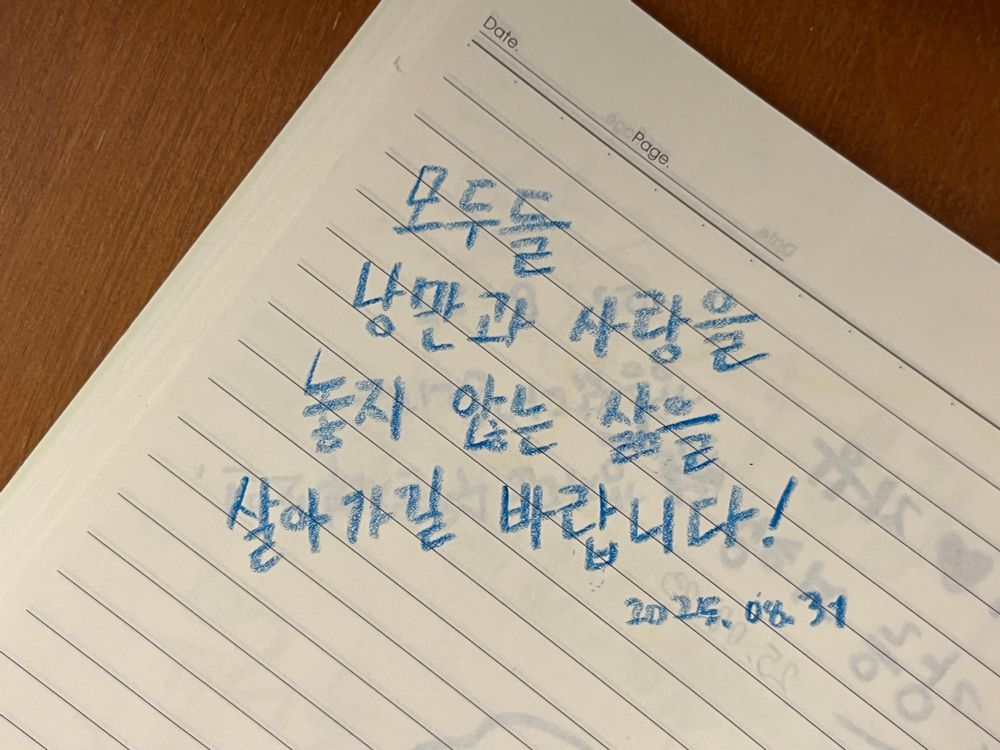 Date.
Page.
모두들
낭만과 사랑을
놓지 않는 삶을
살아가길 바랍니다!
2025. 08. 31